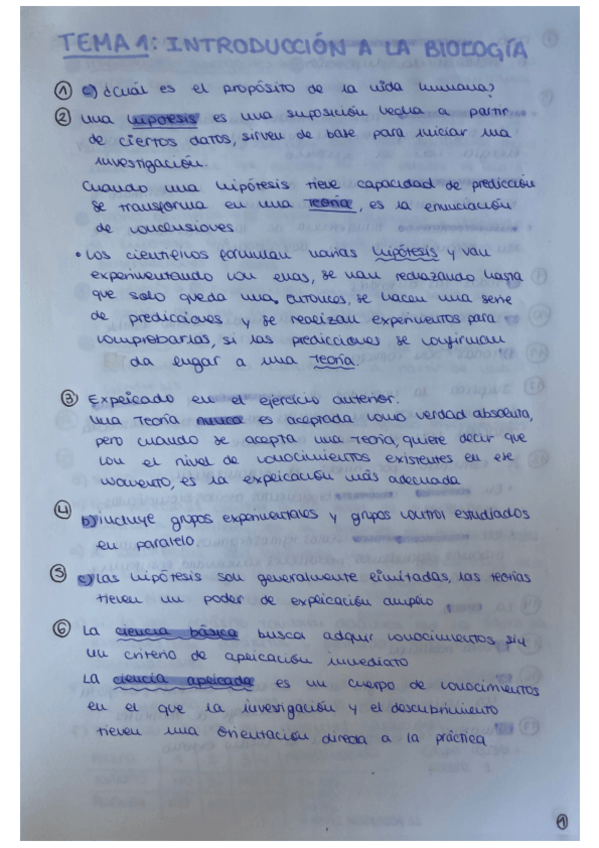 TEMA 1: INTRODUCCIÓN A LA BIOLOGÍA
① c) ¿Cuál es el propósito de la vida humana?
② una hipótesis es una suposición hecha a partir
de ciertos datos, sirven de base para iniciar una
investigación.
Cuando una hipótesis tiene capacidad de predicción
se transforma en una Teoría, es la enunciación
de conclusiones
• Los científicos formulan varias hipótesis y van
experimentando con ellas, se van rechazando hasta
que solo queda una. Entonces, se hacen una serie
de predicciones y se realizan experimentos para
comprobarlas, si las predicciones se confirman
da lugar a una Teoría.
③ Explicado en el ejercicio anterior.
una Teoría nunca es aceptada como verdad absoluta,
pero cuando se acepta una teoría, quiere decir que
con el nivel de conocimientos existentes en ese
momento, es la explicación más adecuada
④ b) incluye grupos experimentales y grupos control estudiados
en paralelo
⑤ c) las hipótesis son generalmente limitadas, las teorías
tienen un poder de explicación amplio
⑥ La ciencia básica busca adquir conocimientos sin
un criterio de aplicación inmediato
La ciencia aplicada es un cuerpo de conocimientos
en el que la investigación y el descubrimiento
tienen una orientación directa a la práctica
①